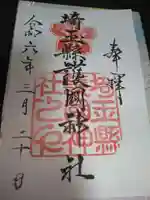 奉拝
埼玉縣護國神社
令和六年三月二十日
埼玉縣
護國神
社之印